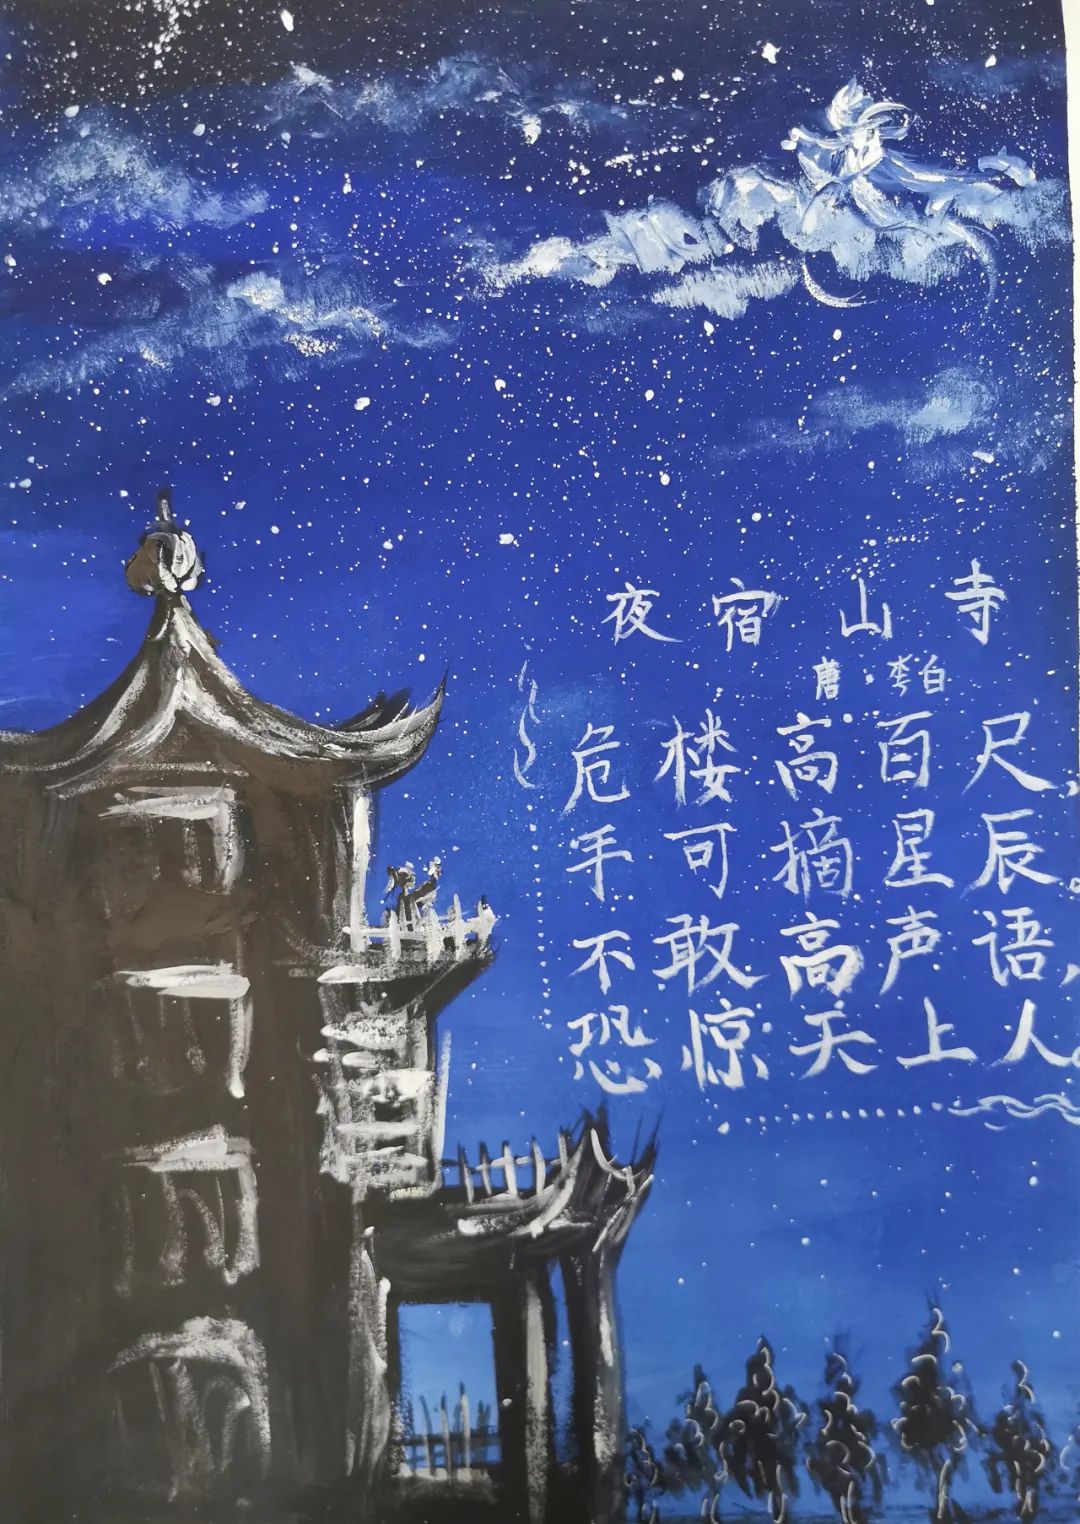 夜宿山寺
唐·李白
危楼高百尺，
手可摘星辰。
不敢高声语，
恐惊天上人。